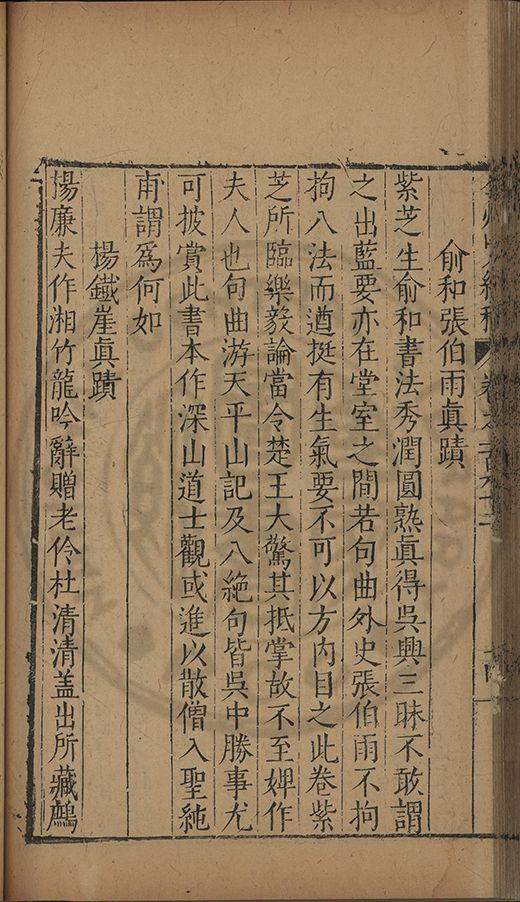 俞和張伯雨眞蹟
紫芝生俞和書法秀潤圓熟眞得吳興三昧不敢謂
之出藍要亦在堂室之間若句曲外史張伯雨不拘
拘八法而遒挺有生氣要不可以方內目之此卷紫
芝所臨樂毅論當令楚王大驚其抵掌故不至婢作
夫人也句曲游天平山記及八絕句皆吳中勝事尤
可披賞此書本作深山道士觀或進以散僧入聖純
甫謂爲何如
楊鐵崖眞蹟
楊廉夫作湘竹龍吟辭贈老伶杜清清盖出所藏鷓